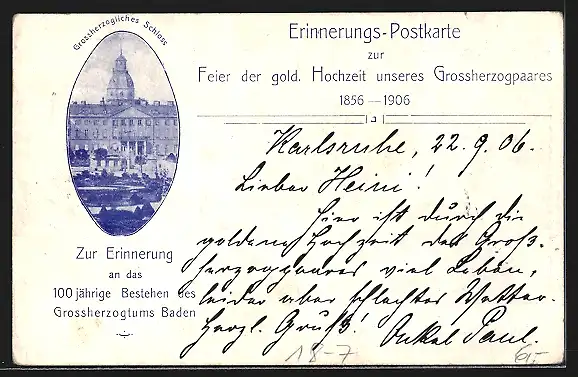 Grossherzogliches Schloss
Erinnerungs-Postkarte
zur
Feier der gold. Hochzeit unseres Grossherzogpaares
1856—1906
Karlsruhe, 22.9.06.
Lieber Heini!
Hier ist durch die
goldene Hochzeit des Groß-
herzogpaares viel Leben,
leider aber schlechtes Wetter.
Herzl. Gruß! Onkel Paul.
Zur Erinnerung
an das
100 jährige Bestehen des
Grossherzogtums Baden
18-7
6,-